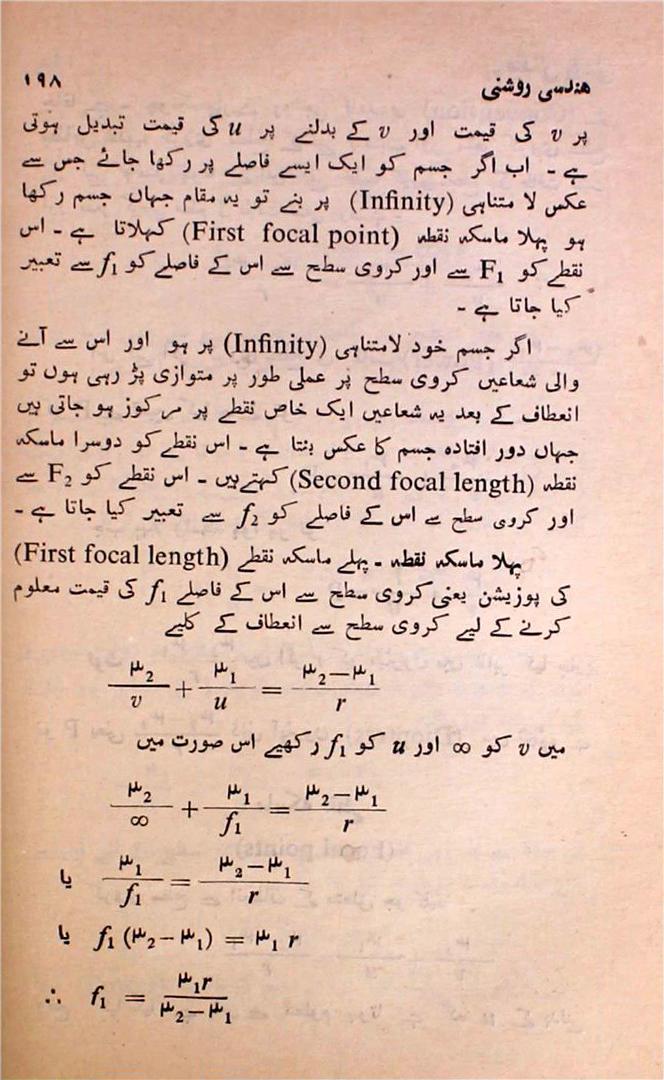 هندسی روشنی ۱۹۸
پر v کی قیمت اور v کے بدلنے پر u کی قیمت تبدیل ہوتی
ہے ۔ اب اگر جسم کو ایک ایسے فاصلے پر رکھا جائے جس سے
عکس لا متناہی (Infinity) پر بنے تو یہ مقام جہاں جسم رکھا
ہو پہلا ماسکہ نقطہ (First focal point) کہلاتا ہے ۔ اس
نقطے کو F₁ سے اور کروی سطح سے اس کے فاصلے کو f₁ سے تعبیر
کیا جاتا ہے ۔
اگر جسم خود لامتناہی (Infinity) پر ہو اور اس سے آنے
والی شعاعیں کروی سطح پر عملی طور پر متوازی پڑ رہی ہوں تو
انعطاف کے بعد یہ شعاعیں ایک خاص نقطے پر مرکوز ہو جاتی ہیں
جہاں دور افتادہ جسم کا عکس بنتا ہے ۔ اس نقطے کو دوسرا ماسکہ
نقطہ (Second focal length) کہتے ہیں ۔ اس نقطے کو F₂ سے
اور کروی سطح سے اس کے فاصلے کو f₂ سے تعبیر کیا جاتا ہے ۔
پہلا ماسکہ نقطہ ۔ پہلے ماسکہ نقطے (First focal length)
کی پوزیشن یعنی کروی سطح سے اس کے فاصلے f₁ کی قیمت معلوم
کرنے کے لیے کروی سطح سے انعطاف کے کلیے
μ₂/v + μ₁/u = (μ₂−μ₁)/r
میں v کو ∞ اور u کو f₁ رکھیے اس صورت میں
μ₂/∞ + μ₁/f₁ = (μ₂−μ₁)/r
یا μ₁/f₁ = (μ₂−μ₁)/r
یا f₁ (μ₂−μ₁) = μ₁ r
∴ f₁ = μ₁r/(μ₂−μ₁)